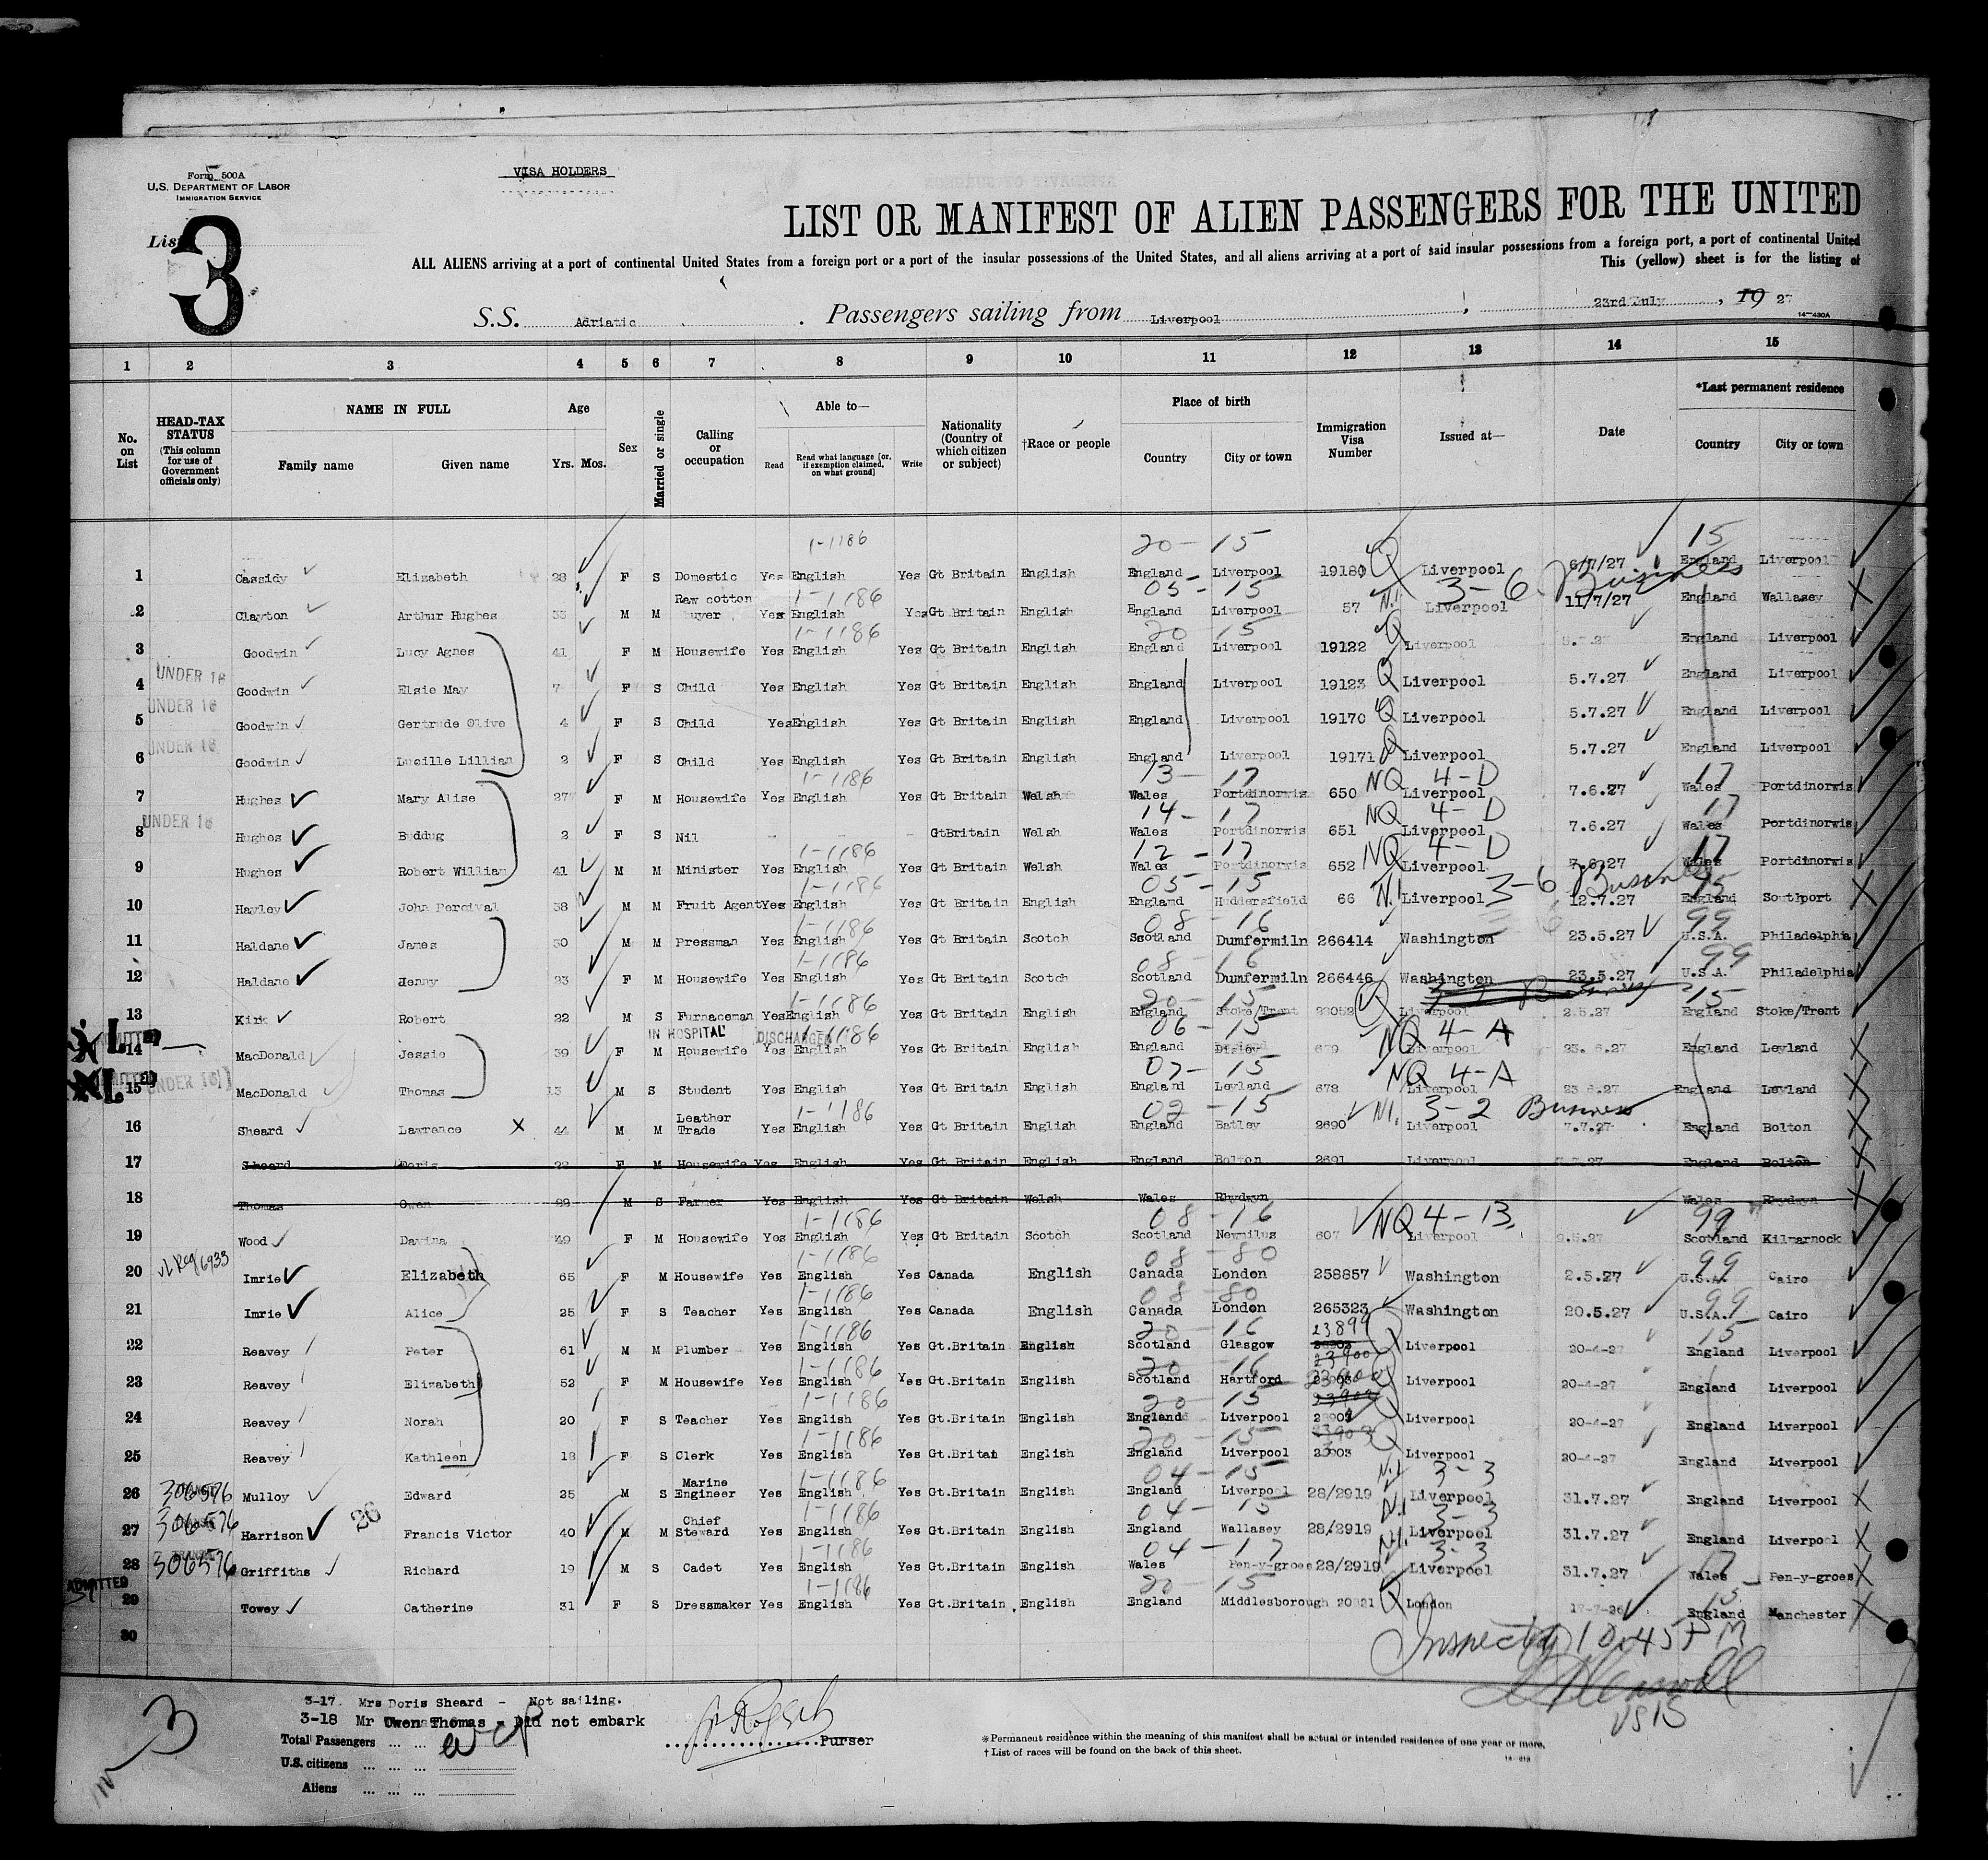 Form 500A
U.S. DEPARTMENT OF LABOR
IMMIGRATION SERVICE
VISA HOLDERS
List 3
LIST OR MANIFEST OF ALIEN PASSENGERS FOR THE UNITED
ALL ALIENS arriving at a port of continental United States from a foreign port or a port of the insular possessions of the United States, and all aliens arriving at a port of said insular possessions from a foreign port, a port of continental United
This (yellow) sheet is for the listing of
S.S. Adriatic . Passengers sailing from Liverpool , 23rd July , 19 27
14—430A
1 2 3 4 5 6 7 8 9 10 11 12 13 14 15
No. on List
HEAD-TAX STATUS (This column for use of Government officials only)
NAME IN FULL
Family name Given name
Age
Yrs. Mos.
Sex
Married or single
Calling or occupation
Able to—
Read Read what language [or, if exemption claimed, on what ground] Write
Nationality (Country of which citizen or subject)
†Race or people
Place of birth
Country City or town
Immigration Visa Number
Issued at—
Date
*Last permanent residence
Country City or town
1-1186 20-15 15
1 Cassidy Elizabeth 28 F S Domestic Yes English Yes Gt Britain English England Liverpool 19180 Q Liverpool 6/7/27 England Liverpool
1-1186 05-15 3-6 Business
2 Clayton Arthur Hughes 33 M M Raw cotton Buyer Yes English Yes Gt Britain English England Liverpool 57 N.I. Liverpool 11/7/27 England Wallasey X
1-1186 20 15
3 Goodwin Lucy Agnes 41 F M Housewife Yes English Yes Gt Britain English England Liverpool 19122 Q Liverpool 5.7.27 England Liverpool
4 UNDER 16 Goodwin Elsie May 7 F S Child Yes English Yes Gt Britain English England Liverpool 19123 Q Liverpool 5.7.27 England Liverpool
5 UNDER 16 Goodwin Gertrude Olive 4 F S Child Yes English Yes Gt Britain English England Liverpool 19170 Q Liverpool 5.7.27 England Liverpool
6 UNDER 16 Goodwin Lucille Lillian 2 F S Child Yes English Yes Gt Britain English England Liverpool 19171 Q Liverpool 5.7.27 England Liverpool
1-1186 13-17 NQ 4-D 17
7 Hughes Mary Alise 27 F M Housewife Yes English Yes Gt Britain Welsh Wales Portdinorwis 650 Liverpool 7.6.27 Wales Portdinorwis
14-17 NQ 4-D 17
8 UNDER 16 Hughes Buddug 2 F S Nil - - - GtBritain Welsh Wales Portdinorwis 651 Liverpool 7.6.27 Wales Portdinorwis
1-1186 12-17 NQ 4-D 17
9 Hughes Robert William 41 M M Minister Yes English Yes Gt Britain Welsh Wales Portdinorwis 652 Liverpool 7.6.27 Wales Portdinorwis
1-1186 05-15 3-6 Business 15
10 Hayley John Percival 38 M M Fruit Agent Yes English Yes Gt Britain English England Huddersfield 66 N.I. Liverpool 12.7.27 England Southport X
1-1186 08-16 99
11 Haldane James 30 M M Pressman Yes English Yes Gt Britain Scotch Scotland Dumfermiln 266414 Washington 23.5.27 U.S.A. Philadelphia
1-1186 08-16 99
12 Haldane Jenny 23 F M Housewife Yes English Yes Gt Britain Scotch Scotland Dumfermiln 266446 Washington 23.5.27 U.S.A. Philadelphia
1-1186 20-15 Business 15
13 Kirk Robert 22 M S Furnaceman Yes English Yes Gt Britain English England Stoke/Trent Q Liverpool 2.5.27 England Stoke/Trent
IN HOSPITAL DISCHARGED 1-1186 06-15 NQ 4-A
14 MacDonald Jessie 39 F M Housewife Yes English Yes Gt Britain English England 679 Liverpool 23.6.27 England Leyland X
07-15 NQ 4-A
15 UNDER 16 MacDonald Thomas 13 M S Student Yes English Yes Gt Britain English England Leyland 678 Liverpool 23 6.27 England Leyland X
1-1186 02-15 N.I. 3-2 Business
16 Sheard Lawrence X 44 M M Leather Trade Yes English Yes Gt Britain English England Batley 2690 Liverpool 7.7.27 England Bolton X
17 Sheard Doris F M Housewife Yes English Yes Gt Britain English England Bolton 2691 Liverpool 7.7.27 England Bolton X
18 Thomas Owen M S Farmer Yes English Yes Gt Britain Welsh Wales Rhydwyn Wales Rhydwyn X
1-1186 08-16 NQ 4-B. 99
19 Wood Davina 49 F M Housewife Yes English Yes Gt Britain Scotch Scotland Newmilus 607 Liverpool 2.5.27 Scotland Kilmarnock
1-1186 08-80 99
20 VL Reg 6933 Imrie Elizabeth 65 F M Housewife Yes English Yes Canada English Canada London 258857 Washington 2.5.27 U.S.A. Cairo
1-1186 08-80 99
21 Imrie Alice 25 F S Teacher Yes English Yes Canada English Canada London 265323 Washington 20.5.27 U.S.A. Cairo
1-1186 20-16 23899 15
22 Reavey Peter 61 M M Plumber Yes English Yes Gt.Britain English Scotland Glasgow Q Liverpool 20-4-27 England Liverpool
1-1186 20 16 23900
23 Reavey Elizabeth 52 F M Housewife Yes English Yes Gt.Britain English Scotland Hartford Q Liverpool 20-4-27 England Liverpool
1-1186 20 15 23902
24 Reavey Norah 20 F S Teacher Yes English Yes Gt.Britain English England Liverpool Q Liverpool 20-4-27 England Liverpool
1-1186 20-15 23903
25 Reavey Kathleen 18 F S Clerk Yes English Yes Gt.Britain English England Liverpool 23903 Q Liverpool 20-4-27 England Liverpool
1-1186 04-15 N.I. 3-3
26 306576 Mulloy Edward 25 M S Marine Engineer Yes English Yes Gt.Britain English England Liverpool 28/2919 Liverpool 31.7.27 England Liverpool X
1-1186 04-15 N.I. 3-3
27 306576 Harrison 26 Francis Victor 40 M M Chief Steward Yes English Yes Gt.Britain English England Wallasey 28/2919 Liverpool 31.7.27 England Liverpool X
1-1186 04-17 N.I. 3-3 17
28 306576 Griffiths Richard 19 M S Cadet Yes English Yes Gt.Britain English Wales Pen-y-groes 28/2919 Liverpool 31.7.27 Wales Pen-y-groes X
ADMITTED 1-1186 20-15 15
29 Towey Catherine 31 F S Dressmaker Yes English Yes Gt.Britain English England Middlesborough Q London England Manchester X
30
Inspected 10.45 PM
3-17. Mrs Doris Sheard - Not sailing.
3-18 Mr Owen Thomas - Did not embark
3
Total Passengers
U.S. citizens
Aliens
Purser
*Permanent residence within the meaning of this manifest shall be actual or intended residence of one year or more.
† List of races will be found on the back of this sheet.